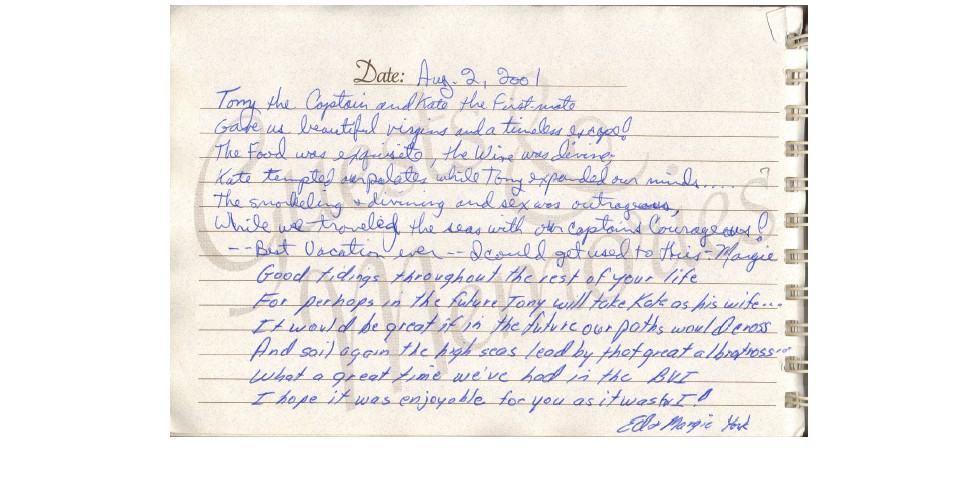 Date: Aug. 2, 2001
Tony the Captain and Kate the First-mate
Gave us beautiful virgins and a timeless escape!
The Food was exquisite, the Wine was divine,
Kate tempted our palates while Tony expanded our minds....
The snorkeling & divining and sex was outrageous,
While we traveled the seas with our captains Courageous!
--Best Vacation ever -- I could get used to this - Margie
Good tidings throughout the rest of your life
For perhaps in the future Tony will take Kate as his wife...
It would be great if in the future our paths would cross
And sail again the high seas lead by that great albatross
What a great time we've had in the BVI
I hope it was enjoyable for you as it was I!
Ed & Margie York
Guests & Memories